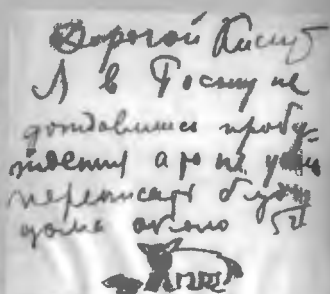 Дорогой Кисит
Я в Госиу не
дождавшись пробу-
ждения а то не
переписать буду
дома около 5
Щен